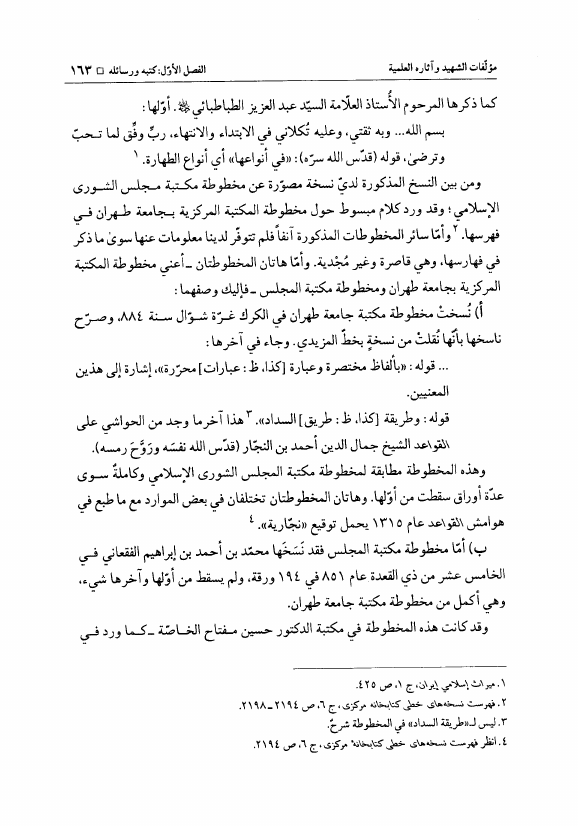 مؤلّفات الشهيد وآثاره العلمية
الفصل الأوّل: كتبه ورسائله □ ١٦٣
كما ذكرها المرحوم الأُستاذ العلّامة السيّد عبد العزيز الطباطبائي. أوّلها:
بسم الله... وبه ثقتي، وعليه تُكلاني في الابتداء والانتهاء، ربِّ وفِّق لما تـحبّ
وترضىٰ، قوله (قدّس الله سرّه): «في أنواعها» أي أنواع الطهارة. ١
ومن بين النسخ المذكورة لديّ نسخة مصوّرة عن مخطوطة مكتبة مـجلس الشـورى
الإسلامي؛ وقد ورد كلام مبسوط حول مخطوطة المكتبة المركزية بـجامعة طـهران فـي
فهرسها. ٢ وأمّا سائر المخطوطات المذكورة آنفاً فلم تتوفّر لدينا معلومات عنها سوىٰ ما ذكر
في فهارسها، وهي قاصرة وغير مُجْدية. وأمّا هاتان المخطوطتان ـ أعني مخطوطة المكتبة
المركزية بجامعة طهران ومخطوطة مكتبة المجلس ـ فإليك وصفهما:
أ) نُسختْ مخطوطة مكتبة جامعة طهران في الكرك غرّة شوّال سنة ٨٨٤، وصـرّح
ناسخها بأنّها نُقلتْ من نسخةٍ بخطّ المزيدي. وجاء في آخرها:
... قوله: «بألفاظ مختصرة وعبارة [كذا، ظ: عبارات] محرّرة»، إشارة إلى هذين
المعنيين.
قوله: وطريقة [كذا، ظ: طريق] السداد». ٣ هذا آخر ما وجد من الحواشي على
القواعد الشيخ جمال الدين أحمد بن النجّار (قدّس الله نفسَه ورَوَّحَ رمسه).
وهذه المخطوطة مطابقة لمخطوطة مكتبة المجلس الشورى الإسلامي وكاملةٌ سـوى
عدّة أوراق سقطت من أوّلها. وهاتان المخطوطتان تختلفان في بعض الموارد مع ما طبع في
هوامش القواعد عام ١٣١٥ يحمل توقيع «نجّارية». ٤
ب) أمّا مخطوطة مكتبة المجلس فقد نَسَخَها محمّد بن أحمد بن إبراهيم الفقعاني فـي
الخامس عشر من ذي القعدة عام ٨٥١ في ١٩٤ ورقة، ولم يسقط من أوّلها وآخرها شيء،
وهي أكمل من مخطوطة مكتبة جامعة طهران.
وقد كانت هذه المخطوطة في مكتبة الدكتور حسين مـفتاح الخاصّة ـ كـما ورد فـي
١. ميراث إسلامي إيران، ج ١، ص ٤٢٥.
٢. فهرست نسخه‌های خطی کتابخانه مرکزی، ج ٦، ص ٢١٩٤ ـ ٢١٩٨.
٣. ليس لـ«طريقة السداد» في المخطوطة شرحٌ.
٤. انظر فهرست نسخه‌های خطی کتابخانه مرکزی، ج ٦، ص ٢١٩٤.